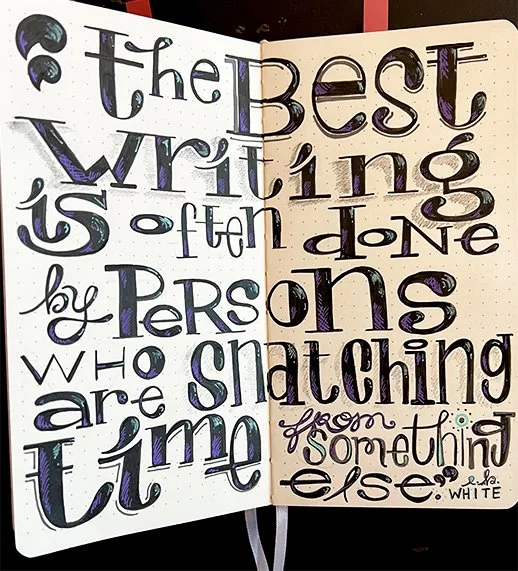 “the Best
writing
is often done
by PeRSons
WHO snatching
are
time from something
else.” e.b. WHITE